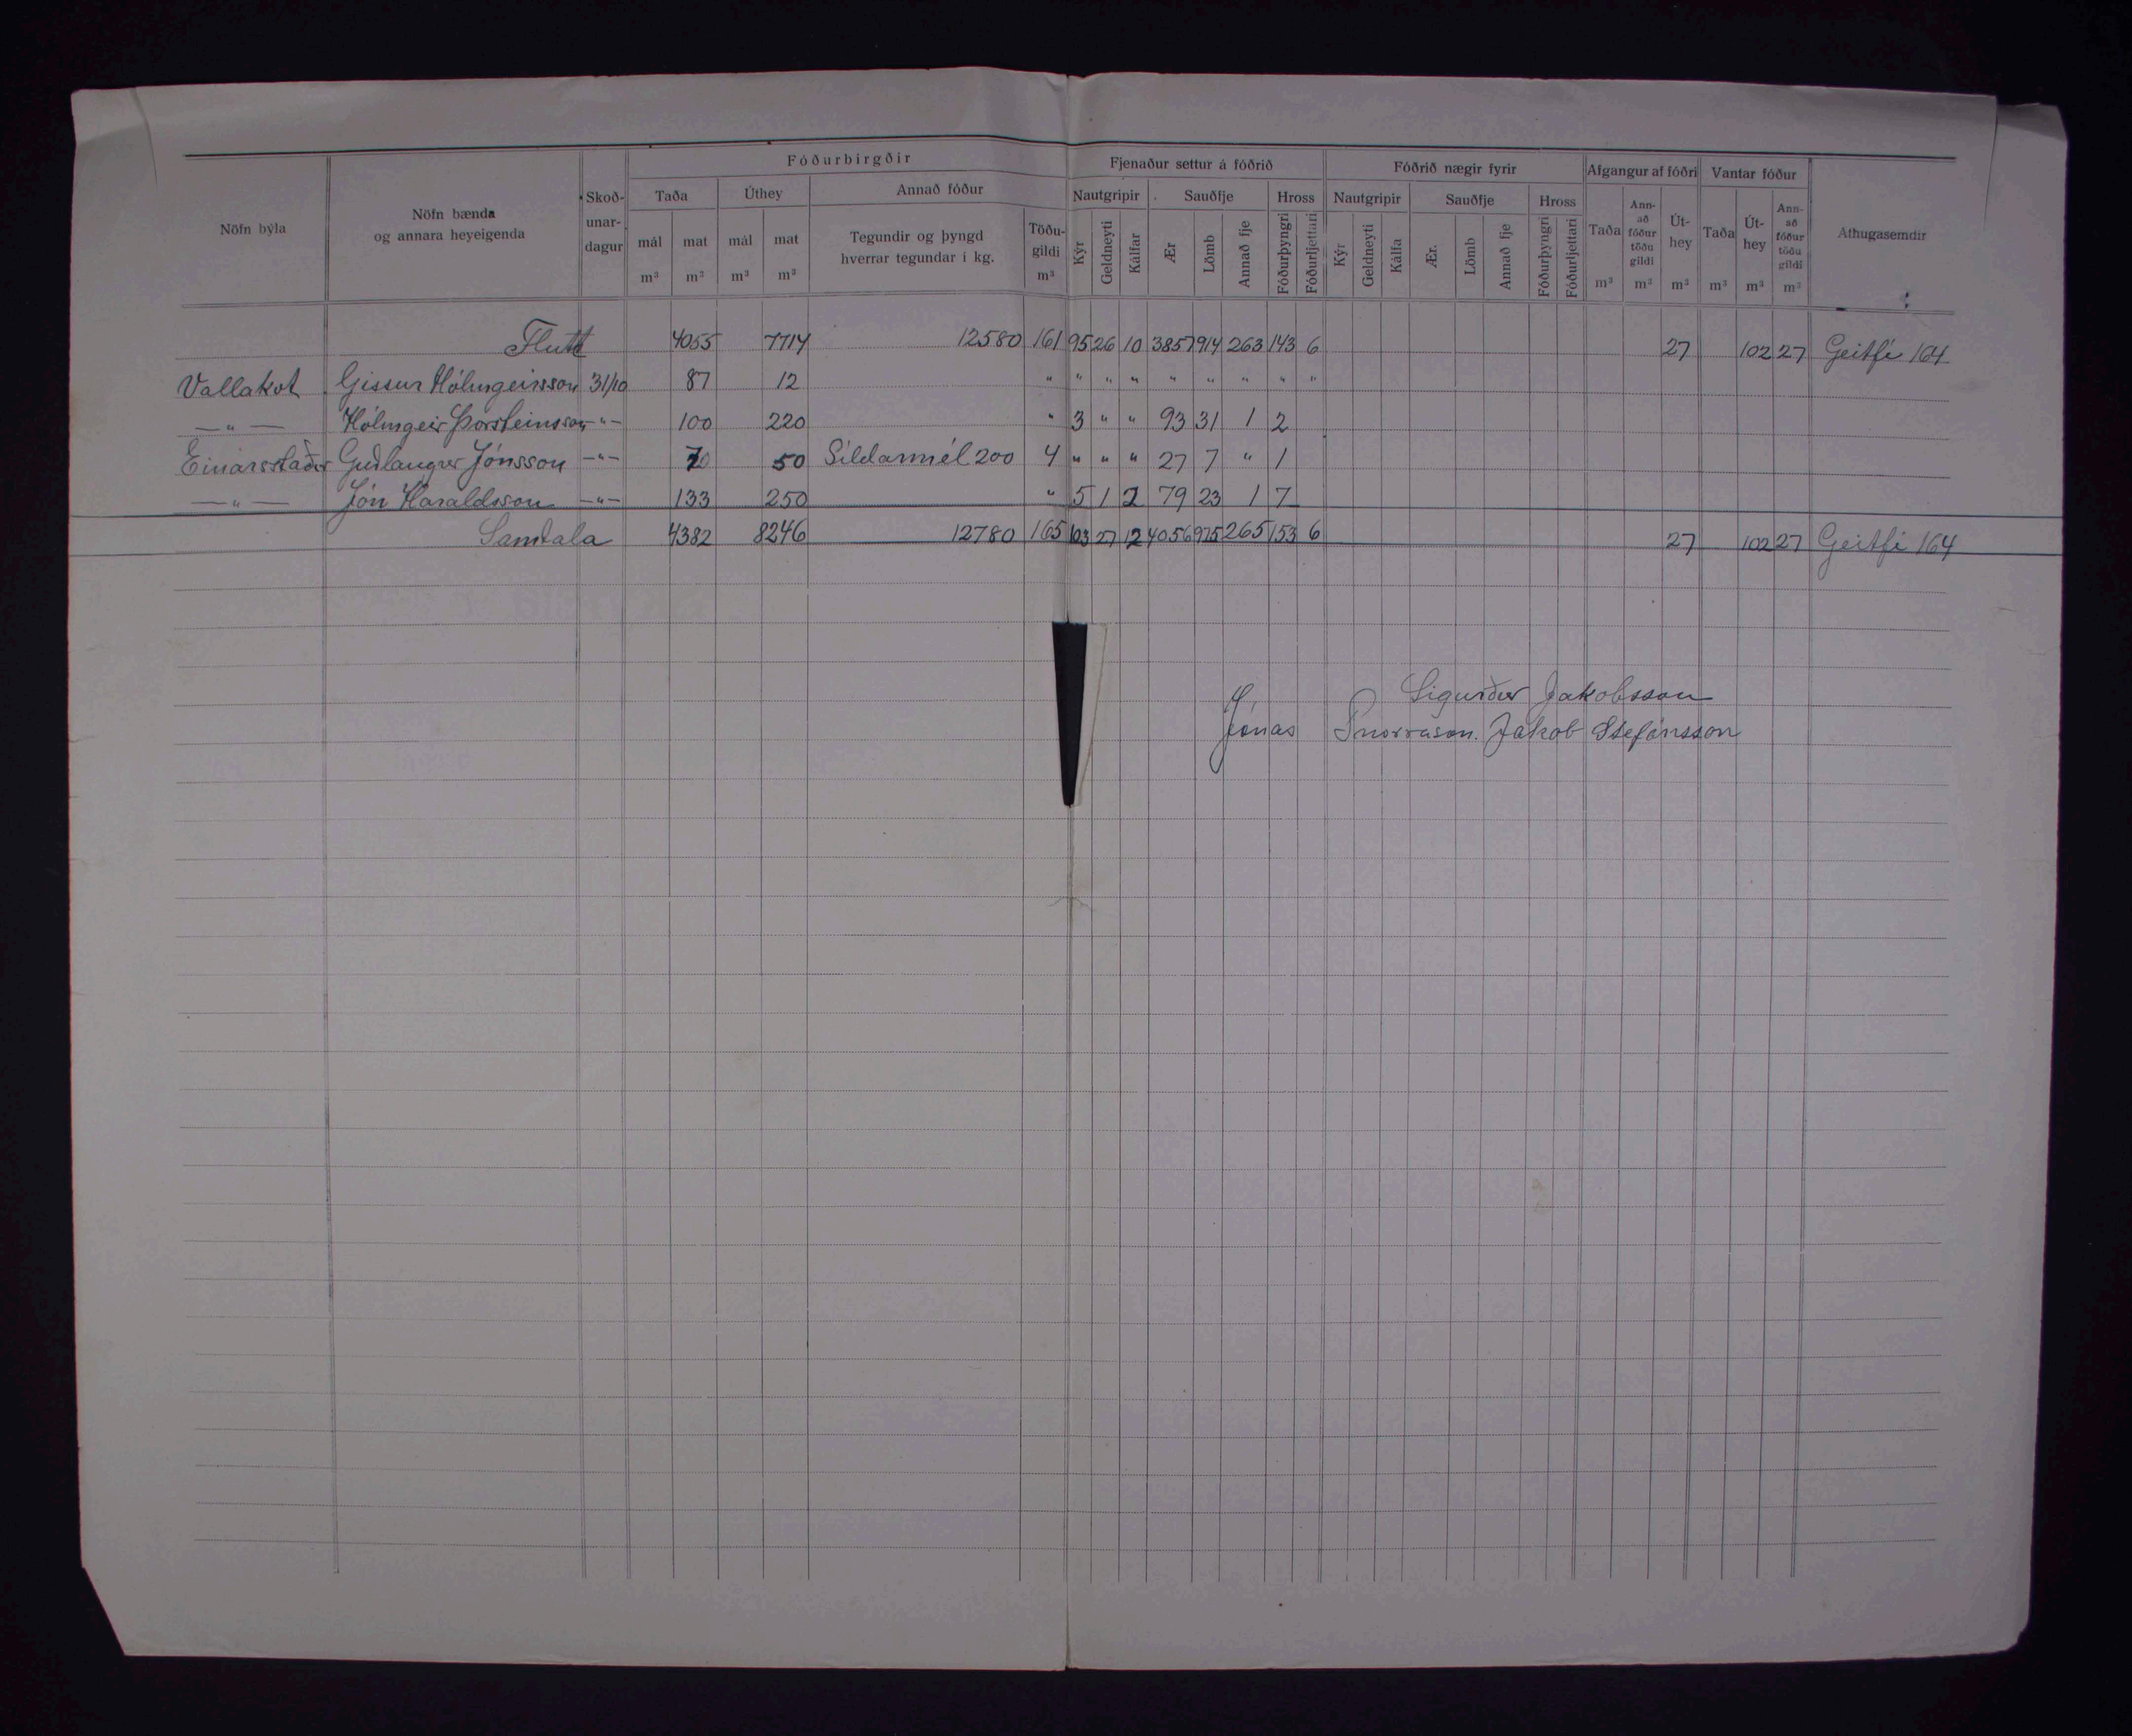 Fóðurbirgðir Fjenaður settur á fóðrið Fóðrið nægir fyrir Afgangur af fóðri Vantar fóður
Nöfn býla Nöfn bænda og annara heyeigenda Skoðunardagur Taða Úthey Annað fóður Nautgripir Sauðfje Hross Nautgripir Sauðfje Hross Taða Annað fóður töðu gildi Úthey Taða Úthey Annað fóður töðu gildi Athugasemdir
mál mat mál mat Tegundir og þyngd hverrar tegundar í kg. Töðugildi Kýr Geldneyti Kálfar Ær Lömb Annað fje Fóðurþyngri Fóðurljettari Kýr Geldneyti Kálfa Ær. Lömb Annað fje Fóðurþyngri Fóðurljettari
m³ m³ m³ m³ m³ m³ m³ m³ m³ m³ m³
Flutt 4055 7714 12580 161 95 26 10 3857 914 263 143 6 27 102 27 Geitfé 164
Vallakot Gissur Hólmgeirsson 31/10 87 12 " " " " " " " " "
—"— Hólmgeir Þorsteinsson -"- 100 220 " 3 " " 93 31 1 2
Einarsstaðir Guðlaugur Jónsson -"- 70 50 Síldarmél 200 4 " " " 27 7 " 1
—"— Jón Haraldsson -"- 133 250 " 5 1 2 79 23 1 7
Samtala 4382 8246 12780 165 103 27 12 4056 975 265 153 6 27 102 27 Geitfé 164
Sigurður Jakobsson
Jónas Snorrason. Jakob Stefánsson